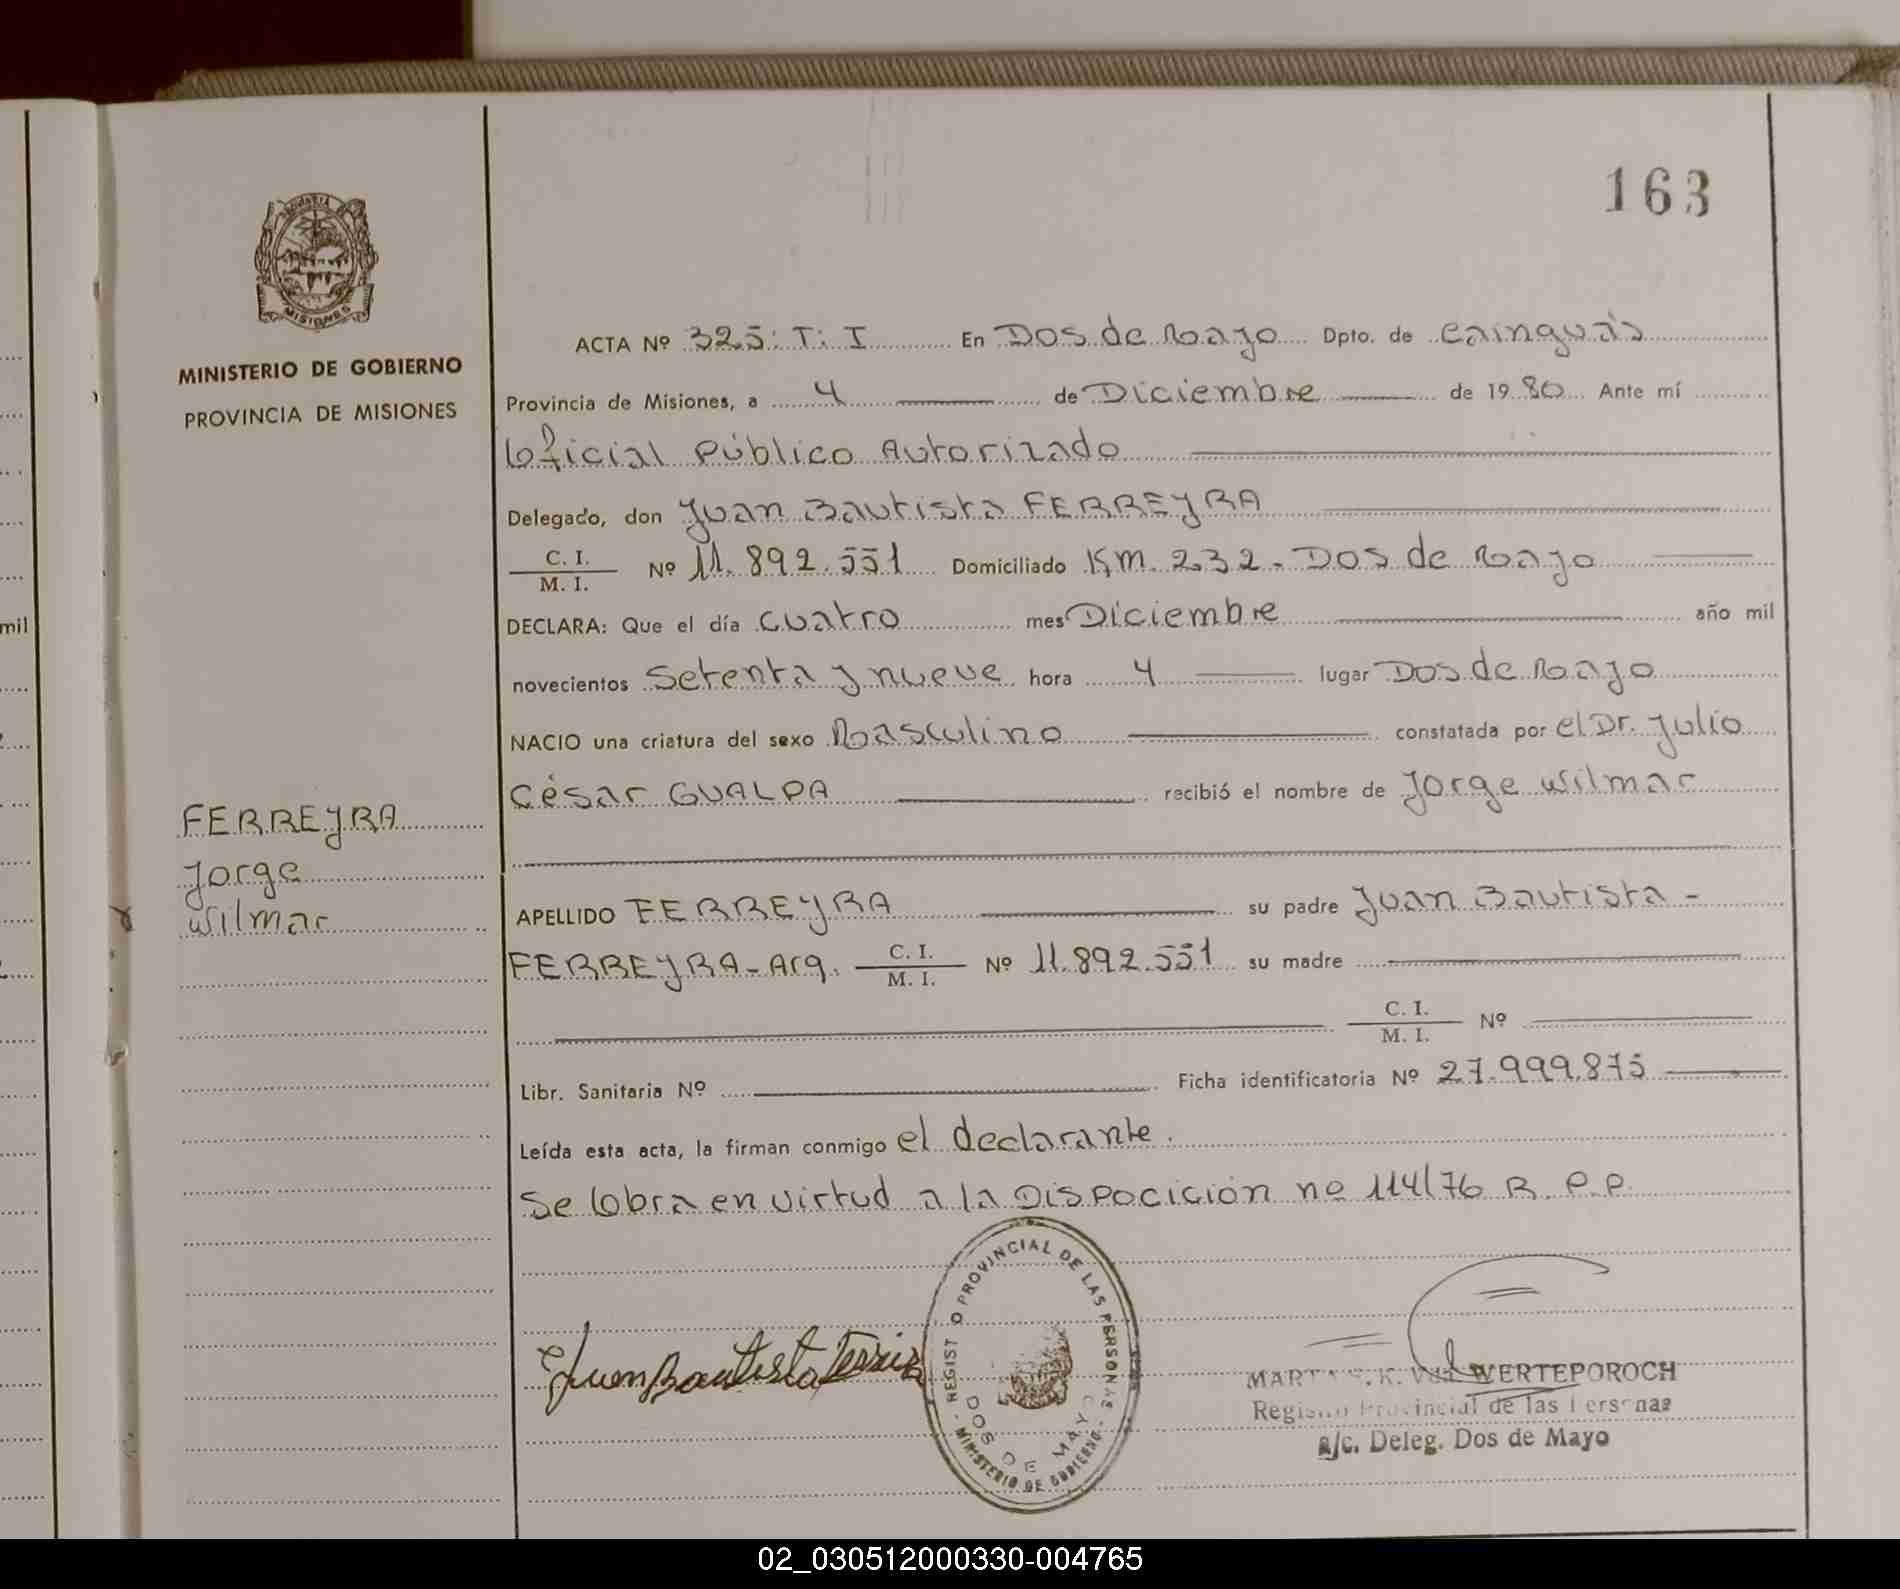 163
MISIONES
MINISTERIO DE GOBIERNO
PROVINCIA DE MISIONES
FERREYRA
Jorge
Wilmar
mil
ACTA Nº 325: T: I En Dos de Mayo Dpto. de Cainguás
Provincia de Misiones, a 4 de Diciembre de 1980 Ante mí
Oficial Público Autorizado
Delegado, don Juan Bautista FERREYRA
C. I.
M. I. Nº 11.892.551 Domiciliado Km. 232 - Dos de Mayo
DECLARA: Que el día cuatro mes Diciembre año mil
novecientos Setenta y nueve hora 4 lugar Dos de Mayo
NACIO una criatura del sexo Masculino constatada por el Dr. Julio
César GUALPA recibió el nombre de Jorge Wilmar
APELLIDO FERREYRA su padre Juan Bautista -
FERREYRA - Arg. C. I.
M. I. Nº 11.892.551 su madre
C. I.
M. I. Nº
Libr. Sanitaria Nº Ficha identificatoria Nº 27.999.875
Leída esta acta, la firman conmigo el declarante.
Se lobra en virtud a la Disposición nº 114/76 R. P. P.
REGISTRO PROVINCIAL DE LAS PERSONAS
DOS DE MAYO
- MINISTERIO DE GOBIERNO -
Juan Bautista
WERTEPOROCH
Registro Provincial de las Personas
a/c. Deleg. Dos de Mayo
02_030512000330-004765